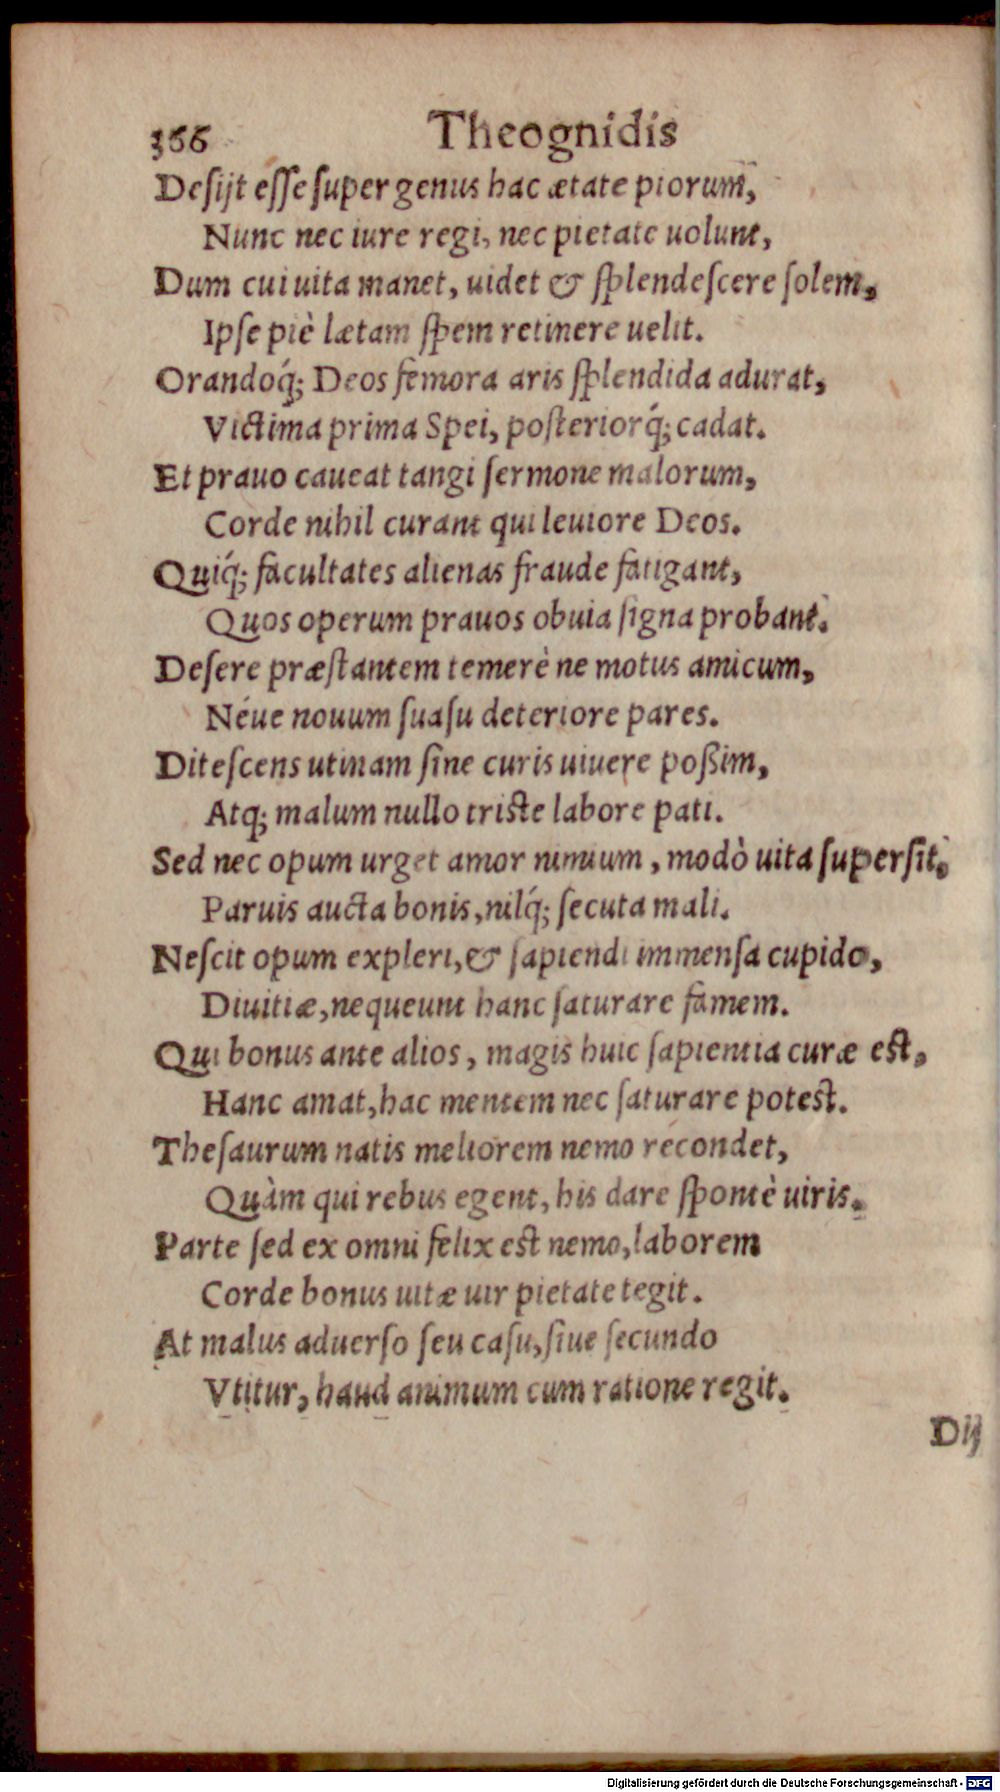 366 Theognidis
Desijt esse super genus hac ætate piorum,
Nunc nec iure regi, nec pietate uolunt,
Dum cui uita manet, uidet & splendescere solem,
Ipse piè lætam spem retinere uelit.
Orandoq́; Deos femora aris splendida adurat,
Victima prima Spei, posteriorq́; cadat.
Et prauo caueat tangi sermone malorum,
Corde nihil curant qui leuiore Deos.
Quiq́; facultates alienas fraude fatigant,
Quos operum prauos obuia signa probant.
Desere præstantem temerè ne motus amicum,
Néue nouum suasu deteriore pares.
Ditescens utinam sine curis uiuere poßim,
Atq; malum nullo triste labore pati.
Sed nec opum urget amor nimium, modò uita supersit,
Paruis aucta bonis, nilq́; secuta mali.
Nescit opum expleri, & sapiendi immensa cupido,
Diuitiæ, nequeunt hanc saturare famem.
Qui bonus ante alios, magis huic sapientia curæ est,
Hanc amat, hac mentem nec saturare potest.
Thesaurum natis meliorem nemo recondet,
Quàm qui rebus egent, his dare spontè uiris.
Parte sed ex omni felix est nemo, laborem
Corde bonus uitæ uir pietate tegit.
At malus aduerso seu casu, siue secundo
Vtitur, haud animum cum ratione regit.
Dij
Digitalisierung gefördert durch die Deutsche Forschungsgemeinschaft - DFG